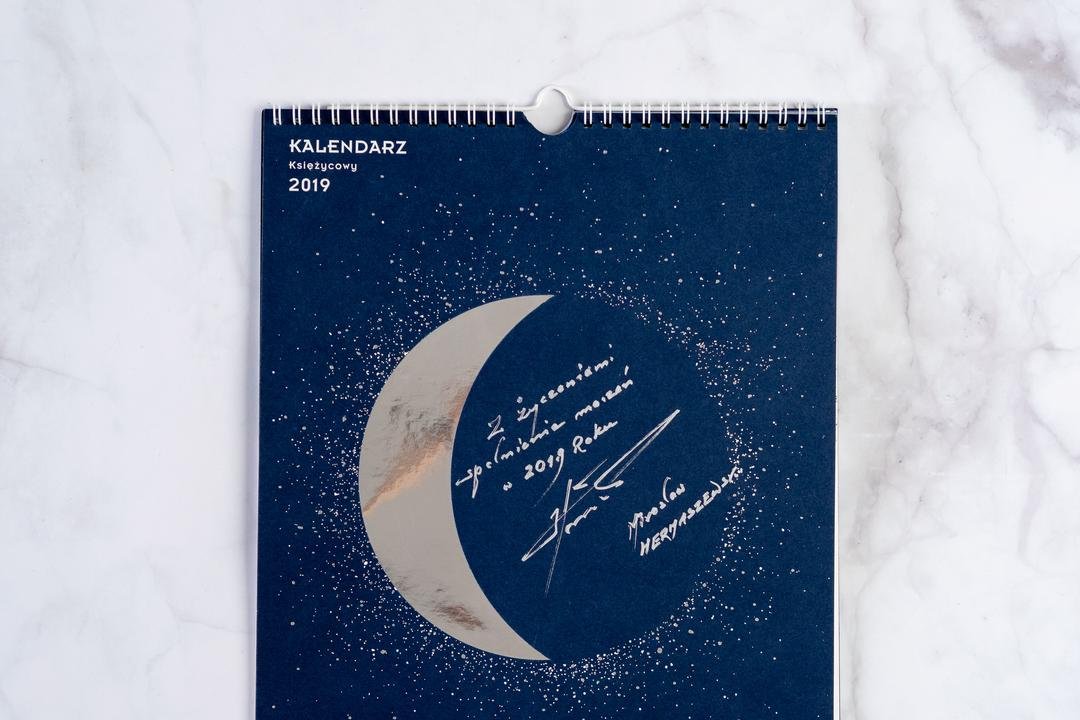 KALENDARZ
Księżycowy
2019
Z życzeniami
spełnienia marzeń
w 2019 Roku
Mirosław
HERMASZEWSKI